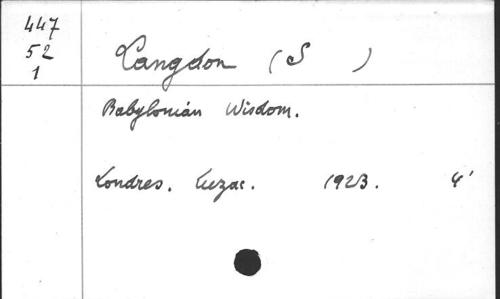 447
52
1
Langdon (S )
Babylonian Wisdom.
Londres. Luzac. 1923. 4'